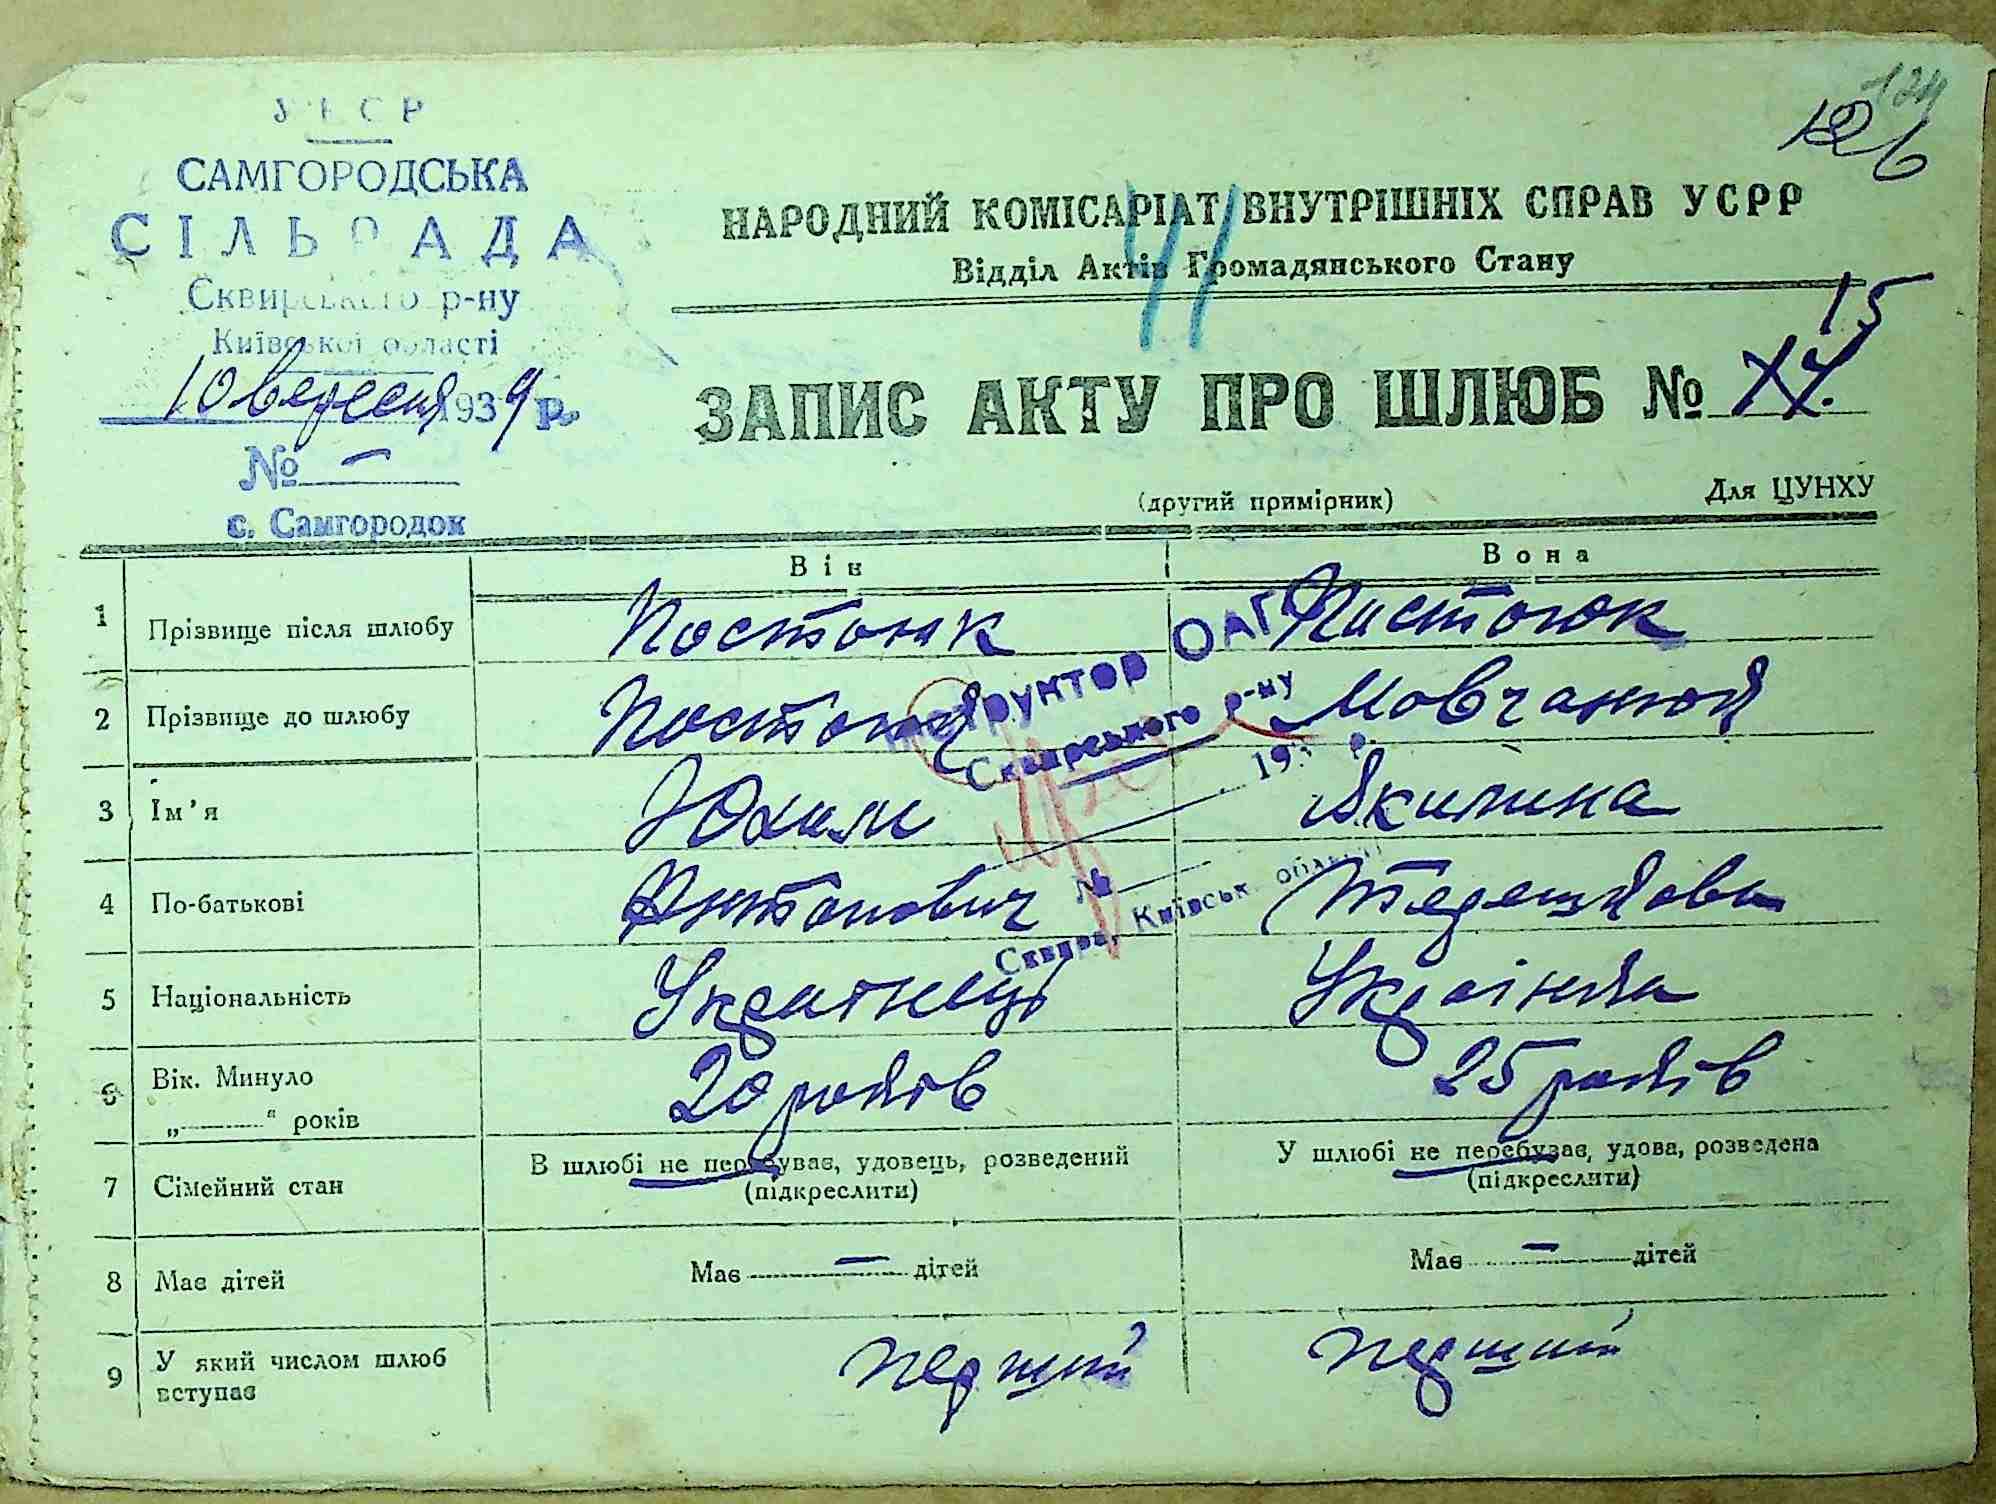 УРСР
САМГОРОДСЬКА
СІЛЬРАДА
Сквирського р-ну
Київської області
10 вересня 1939 р.
№ —
с. Самгородок
126
НАРОДНИЙ КОМІСАРІАТ ВНУТРІШНІХ СПРАВ УСРР
Відділ Актів Громадянського Стану
41
15
ЗАПИС АКТУ ПРО ШЛЮБ №
(другий примірник) Для ЦУНХУ
Він Вона
1 Прізвище після шлюбу Постоюк Постоюк
2 Прізвище до шлюбу Постоюк
Інструктор ОАГС
Сквирського р-ну
193 р.
№
Сквира, Київськ. області
3 Ім'я Юхим Якилина
4 По-батькові Антонович
5 Національність Українець Українка
6 Вік. Минуло 20 років 25 років
„ " років
7 Сімейний стан В шлюбі не перебуває, удовець, розведений У шлюбі не перебуває, удова, розведена
(підкреслити) (підкреслити)
8 Має дітей Має — дітей Має — дітей
9 У який числом шлюб вступає перший перший